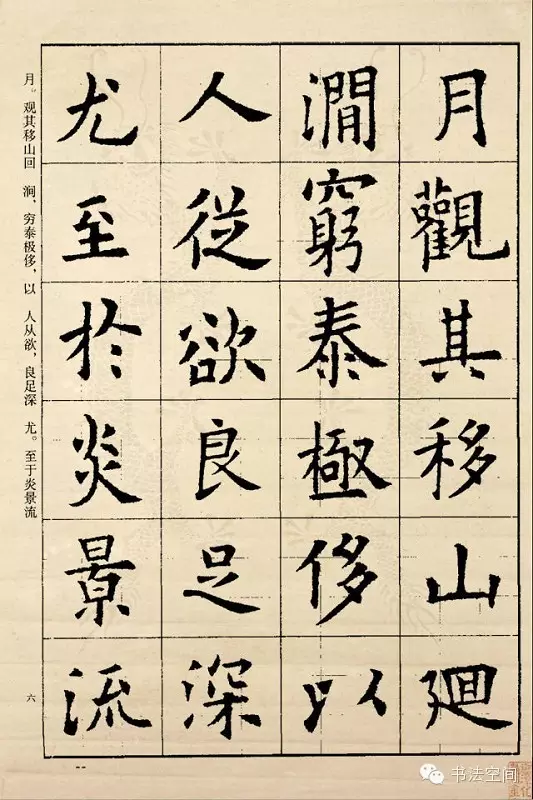 月觀其移山廻
澗窮泰極侈以
人從欲良足深
尤至於炎景流
月。观其移山回 涧，穷泰极侈，以 人从欲，良足深 尤。至于炎景流
六
书法空间